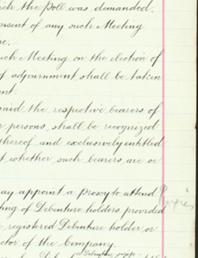 ich the Poll was demanded.
onsent of any such Meeting
e.
such Meeting on the election of
of adjournment shall be taken
ent.
said the respective bearers of
e persons, shall be recognized
thereof and exclusively entitled
t whether such bearers are or
ay appoint a proxy to attend
Proxies
ting of Debenture holders provided
e registered Debenture holder or
ctor of the Company.